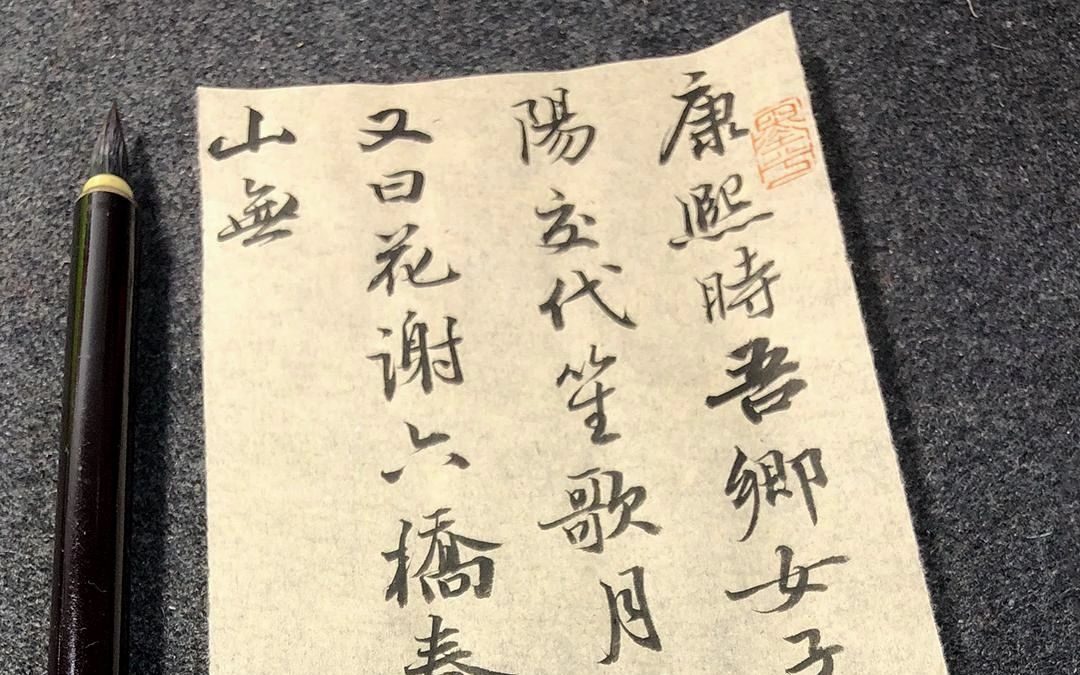 康熙時吾鄉女子
陽交代笙歌月
又曰花謝六橋春
山無